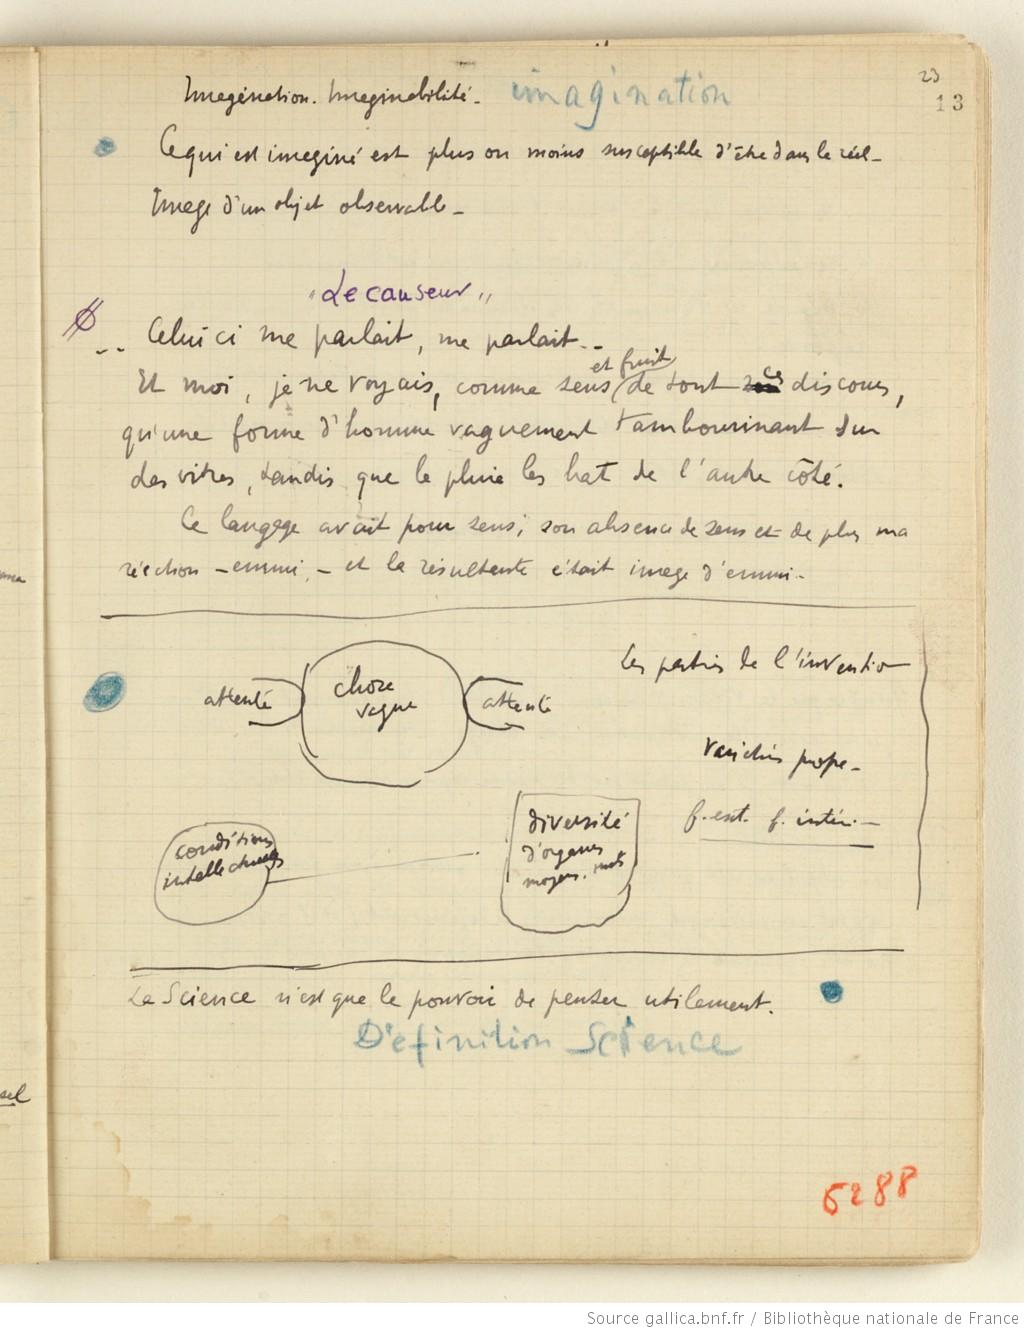 23
13
Imagination. Imaginabilité. imagination
Ce qui est imaginé est plus ou moins susceptible d'être dans le réel.
Image d'un objet observable.
"Le causeur"
.. Celui ci me parlait, me parlait..
et fruit
Et moi, je ne voyais, comme sens de tout ces discours,
qu'une forme d'homme vaguement tambourinant sur
des vitres, tandis que la pluie les bat de l'autre côté.
Ce langage avait pour sens, son absence de sens et de plus ma
réaction - ennui, - et la résultante était image d'ennui.
Les parties de l'invention
attente
chose
vague
attente
f. ext. f. intér.
conditions
intellectuelles
diversité
d'organes
moyens. mots
La Science n'est que le pouvoir de penser utilement.
Définition Science
sel
6288
Source gallica.bnf.fr / Bibliothèque nationale de France